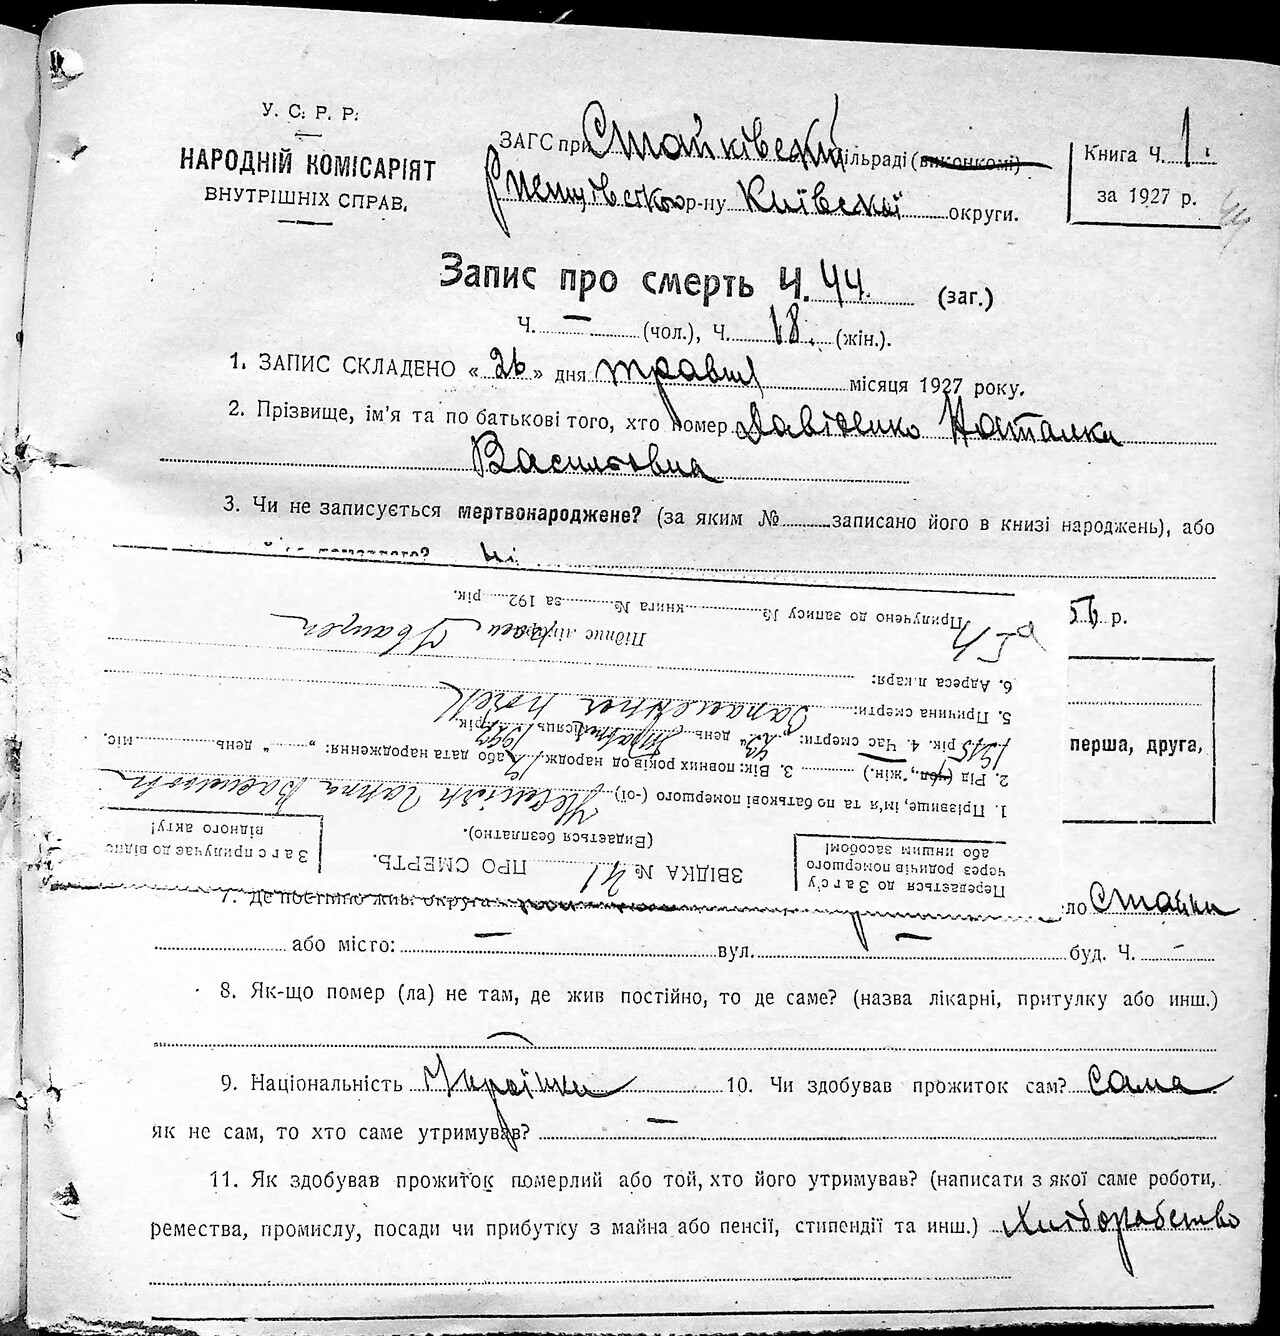 У. С. Р. Р.
НАРОДНІЙ КОМІСАРІЯТ
ВНУТРІШНІХ СПРАВ.
ЗАГС при Стайківській сільраді (виконкомі)
р-ну Київської округи.
Книга Ч. 1.
за 1927 р.
44
Запис про смерть Ч. 44. (заг.)
Ч. — (чол.), Ч. 18. (жін.).
1. ЗАПИС СКЛАДЕНО « 26 » дня травня місяця 1927 року.
2. Прізвище, ім'я та по батькові того, хто помер Давіденко Наталка
Васильовна
3. Чи не записується мертвонароджене? (за яким № записано його в книзі народжень), або
ні
56 р.
перша, друга,
Передається до Загс'у
через родичів померлого
або иншим засобом!
ЗВІДКА № 41 ПРО СМЕРТЬ.
(Видається безплатно).
Загс прилучає до відпо
відного акту!
1. Прізвище, ім'я та по батькові помершого (-ої) Ганна
2. Рід (чол., жін.) 3. Вік: повних років од народж. або дата народження: „ “ день міс.
1915 рік. 4. Час смерти: „23“ день травня місяць 1927 рік.
5. Причина смерти:
6. Адреса лікаря:
Підпис лікаря
Прилучено до запису № книга № за 192 рік.
7. Де постійно жив: округа село Стайки
або місто: — вул. — буд. Ч. —
8. Як-що помер (ла) не там, де жив постійно, то де саме? (назва лікарні, притулку або инш.)
9. Національність Українка 10. Чи здобував прожиток сам? сама
як не сам, то хто саме утримував? —
11. Як здобував прожиток померлий або той, хто його утримував? (написати з якої саме роботи,
ремества, промислу, посади чи прибутку з майна або пенсії, стипендії та инш.) Хліборобство